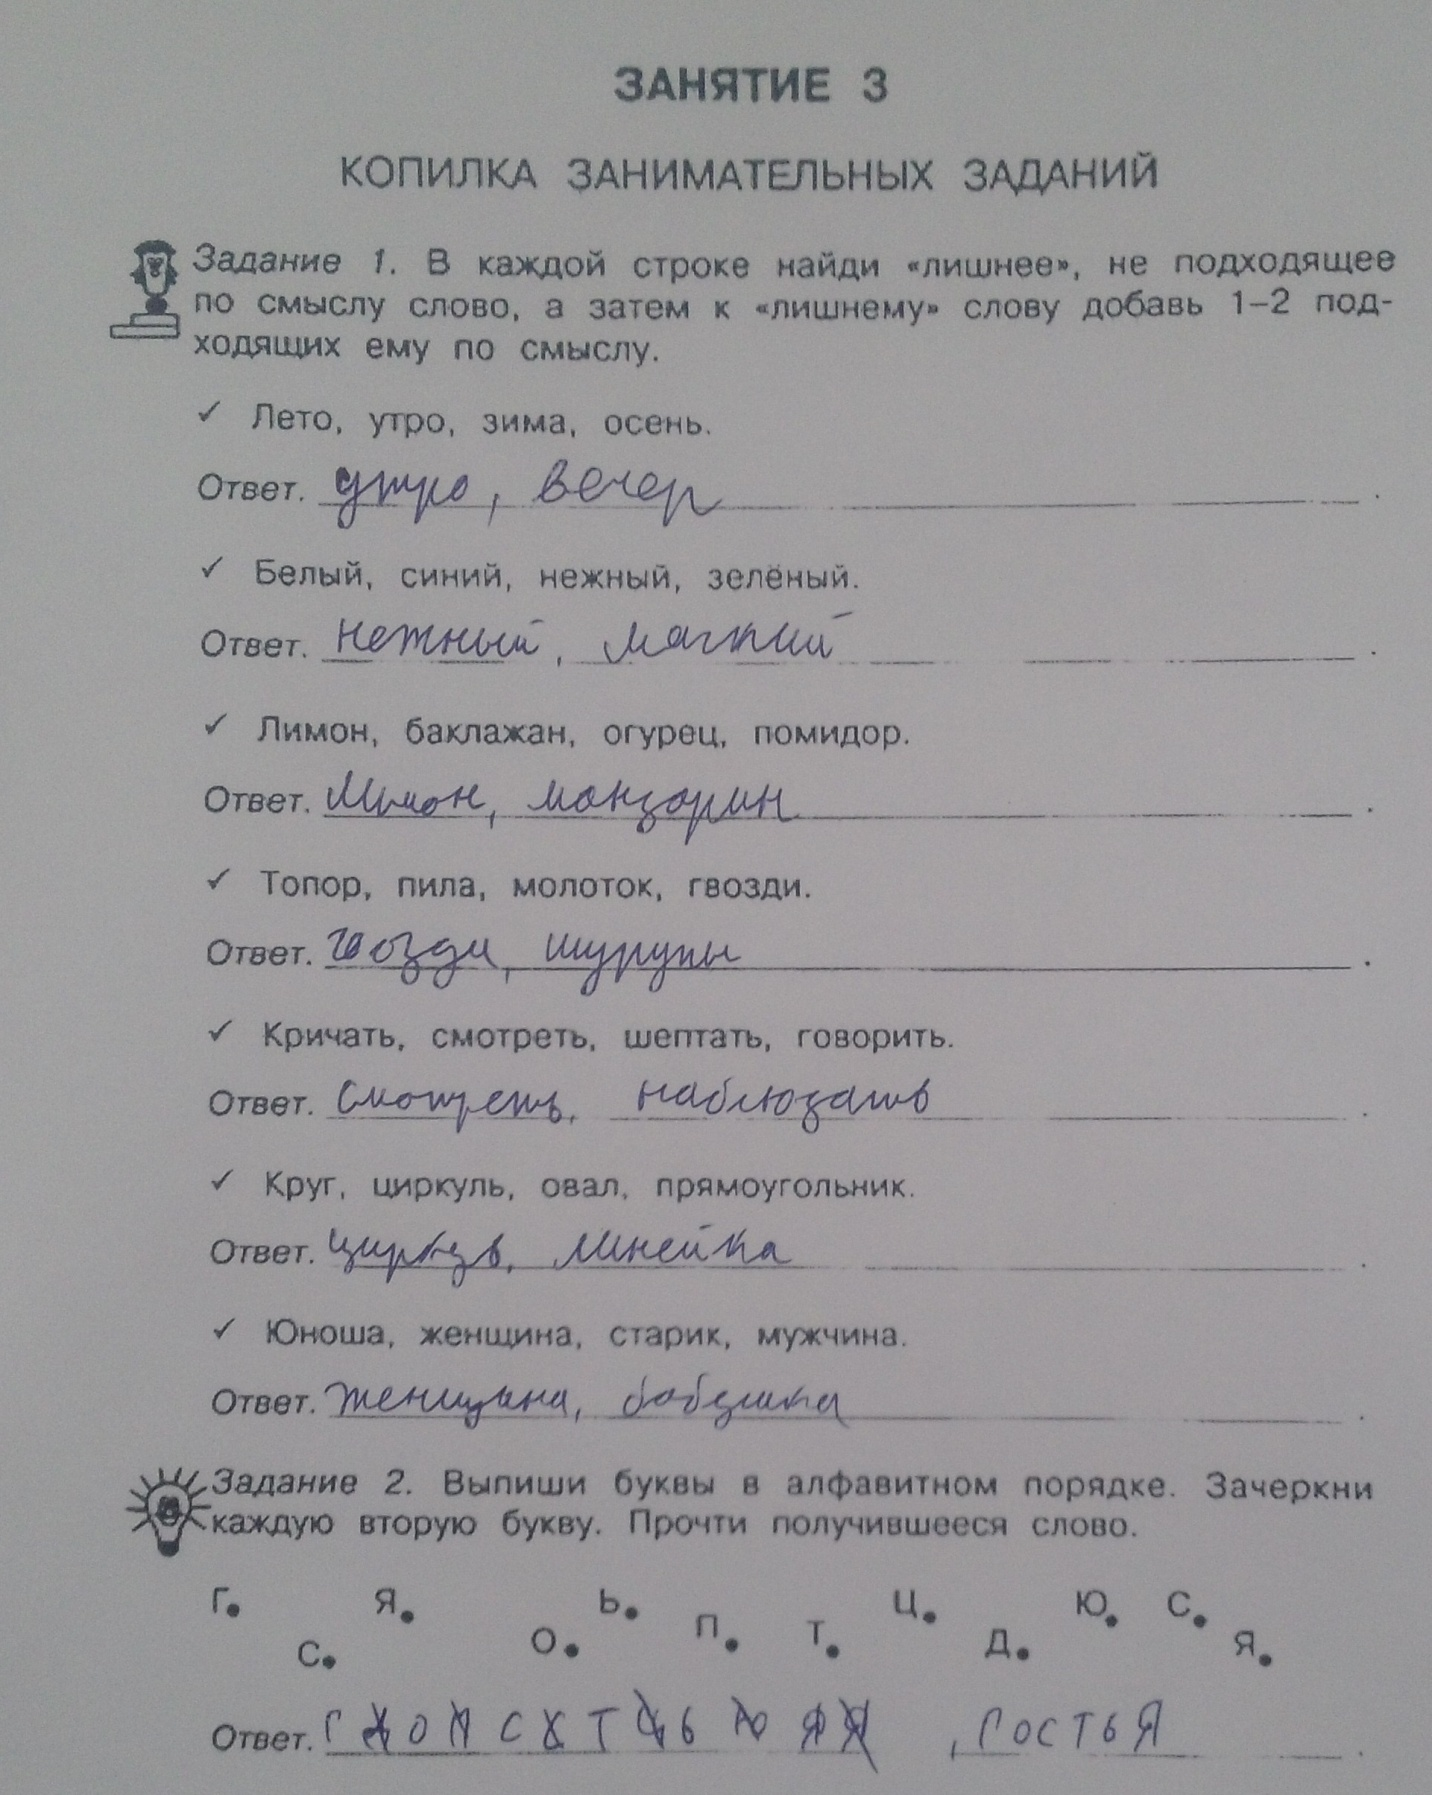 ЗАНЯТИЕ 3
КОПИЛКА ЗАНИМАТЕЛЬНЫХ ЗАДАНИЙ
Задание 1. В каждой строке найди «лишнее», не подходящее
по смыслу слово, а затем к «лишнему» слову добавь 1–2 под-
ходящих ему по смыслу.
✓ Лето, утро, зима, осень.
Ответ. утро, вечер.
✓ Белый, синий, нежный, зелёный.
Ответ. нежный, мягкий.
✓ Лимон, баклажан, огурец, помидор.
Ответ. Лимон, мандарин.
✓ Топор, пила, молоток, гвозди.
Ответ. гвозди, шурупы.
✓ Кричать, смотреть, шептать, говорить.
Ответ. Смотреть, наблюдать.
✓ Круг, циркуль, овал, прямоугольник.
Ответ. линейка.
✓ Юноша, женщина, старик, мужчина.
Ответ. женщина, бабушка.
Задание 2. Выпиши буквы в алфавитном порядке. Зачеркни
каждую вторую букву. Прочти получившееся слово.
Г. С. Я. О. Ь. П. Т. Ц. Д. Ю. С. Я.
Ответ. Г Д О П С С Т Ц Ь Ю Я Я, ГОСТЬЯ.